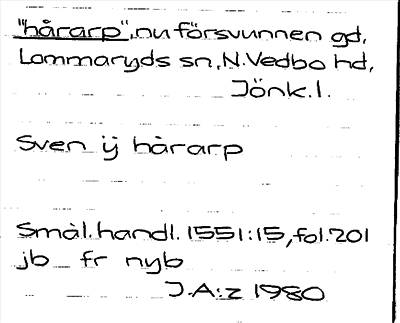 "hårarp", nu försvunnen gd,
Lommaryds sn, N. Vedbo hd,
Jönk. l.
Sven ÿ hårarp
Smål. handl. 1551:15, fol. 201
jb fr nyb
J.A:z 1980